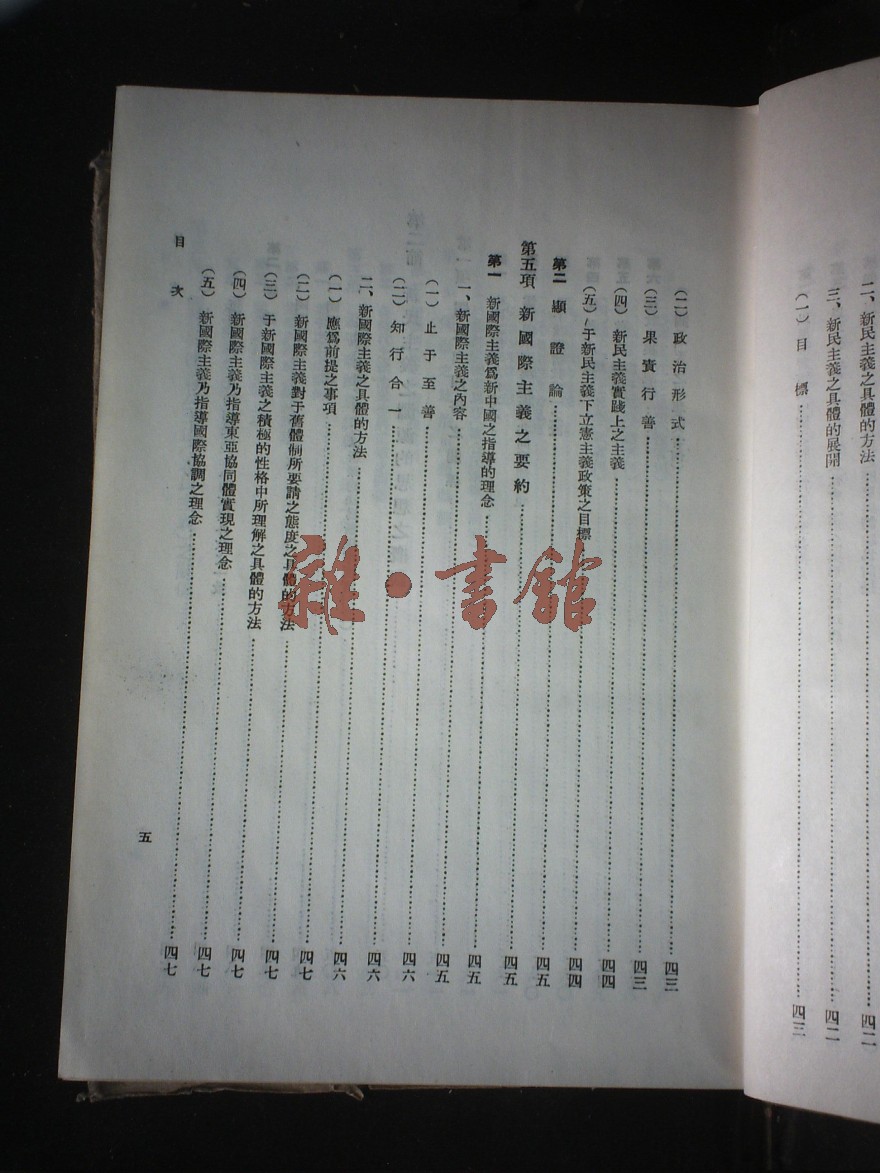 二、新民主義之具體的方法……四二
三、新民主義之具體的展開……四二
(一)目標……四三
(二)政治形式……四三
(三)果 行善……四三
(四)新民主義實踐上之主義……四四
(五)于新民主義下立憲主義政策之目標……四四
第二 顯證論……四五
第五項 新國際主義之要約……四五
第一 新國際主義爲新中國之指導的理念……四五
一、新國際主義之內容……四五
(一)止于至善……四六
(二)知行合一……四六
二、新國際主義之具體的方法……四六
(一)應爲前提之事項……四七
(二)新國際主義對于舊體制所要請之態度之具體的方法……四七
(三)于新國際主義之積極的性格中所理解之具體的方法……四七
(四)新國際主義乃指導東亞協同體實現之理念……四七
(五)新國際主義乃指導國際協調之理念……四七
目次
五
雜·書館